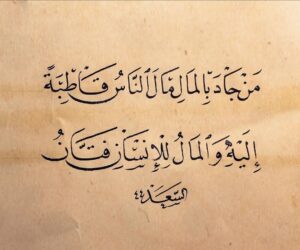 مَنْ جَادَ بِالمَالِ مَالَ ٱلنَّاسُ قَاطِبَةً
إِلَيْهِ وَٱلمَالُ لِلْإِنْسَانِ فَتَّانُ
السَّعَدِيّ ٤٤